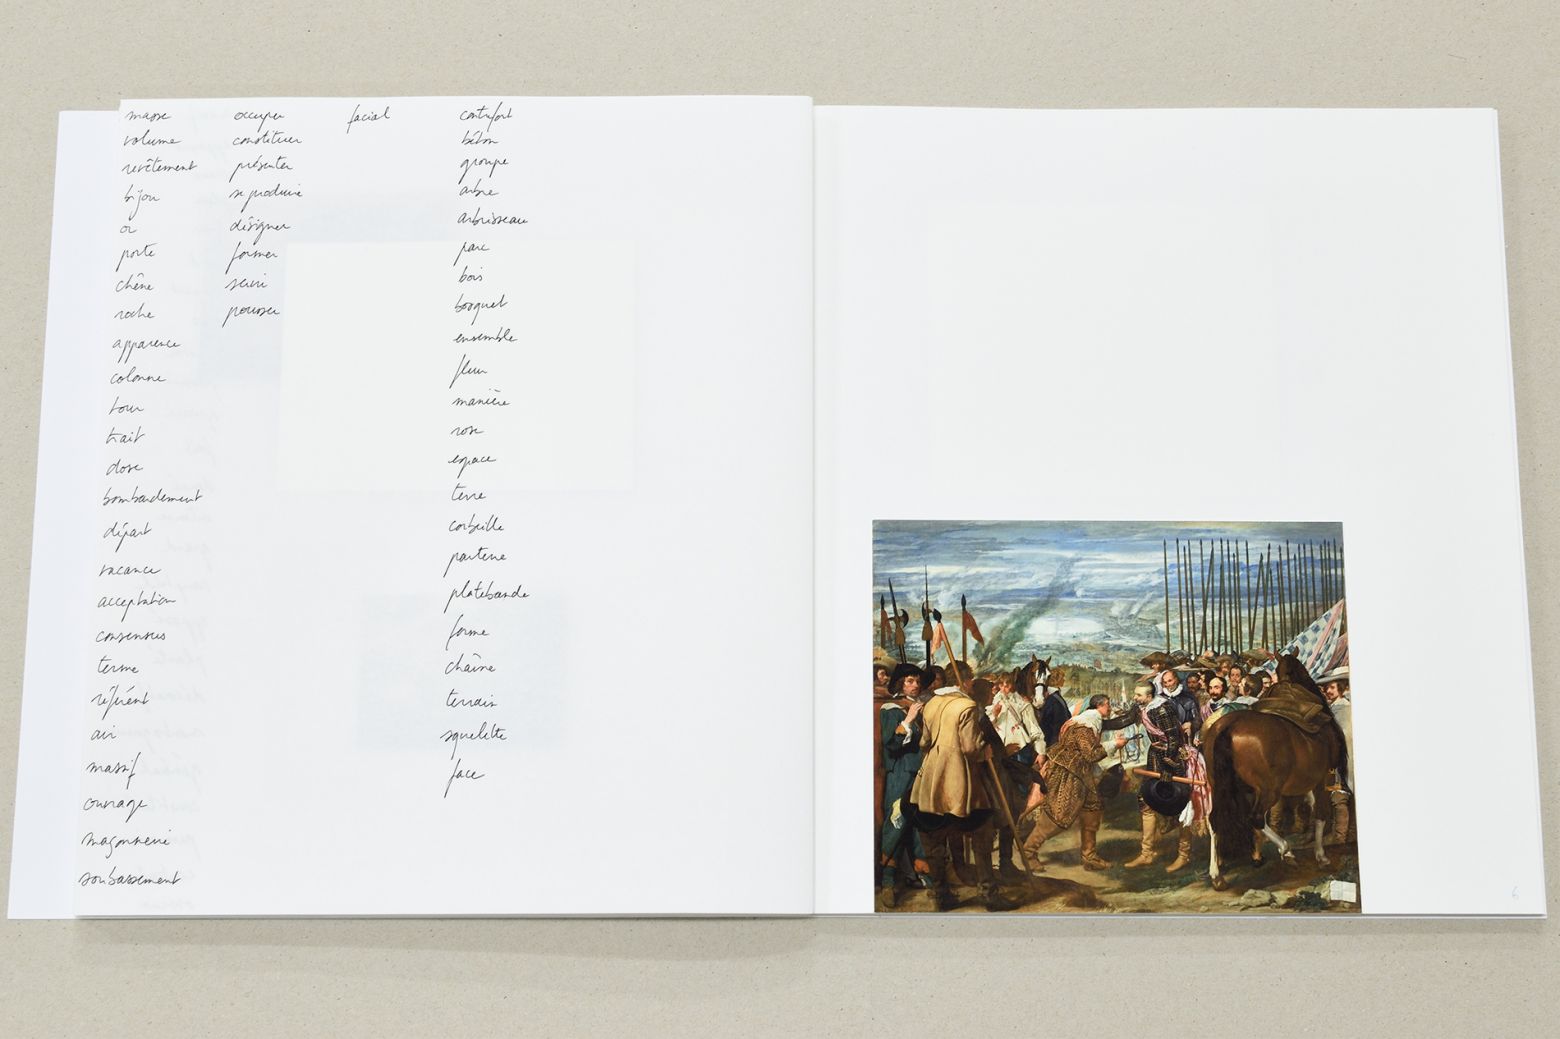 masse
volume
revêtement
bijou
or
porte
chêne
roche
apparence
colonne
tour
trait
dose
bombardement
départ
vacance
acceptation
consensus
terme
référent
air
massif
ouvrage
maçonnerie
soubassement
occuper
constituer
présenter
se produire
désigner
former
servir
pousser
facial
contrefort
béton
groupe
arbre
arbrisseau
parc
bois
bosquet
ensemble
fleur
manière
rose
espace
terre
corbeille
parterre
platebande
forme
chaîne
terrain
squelette
face
6